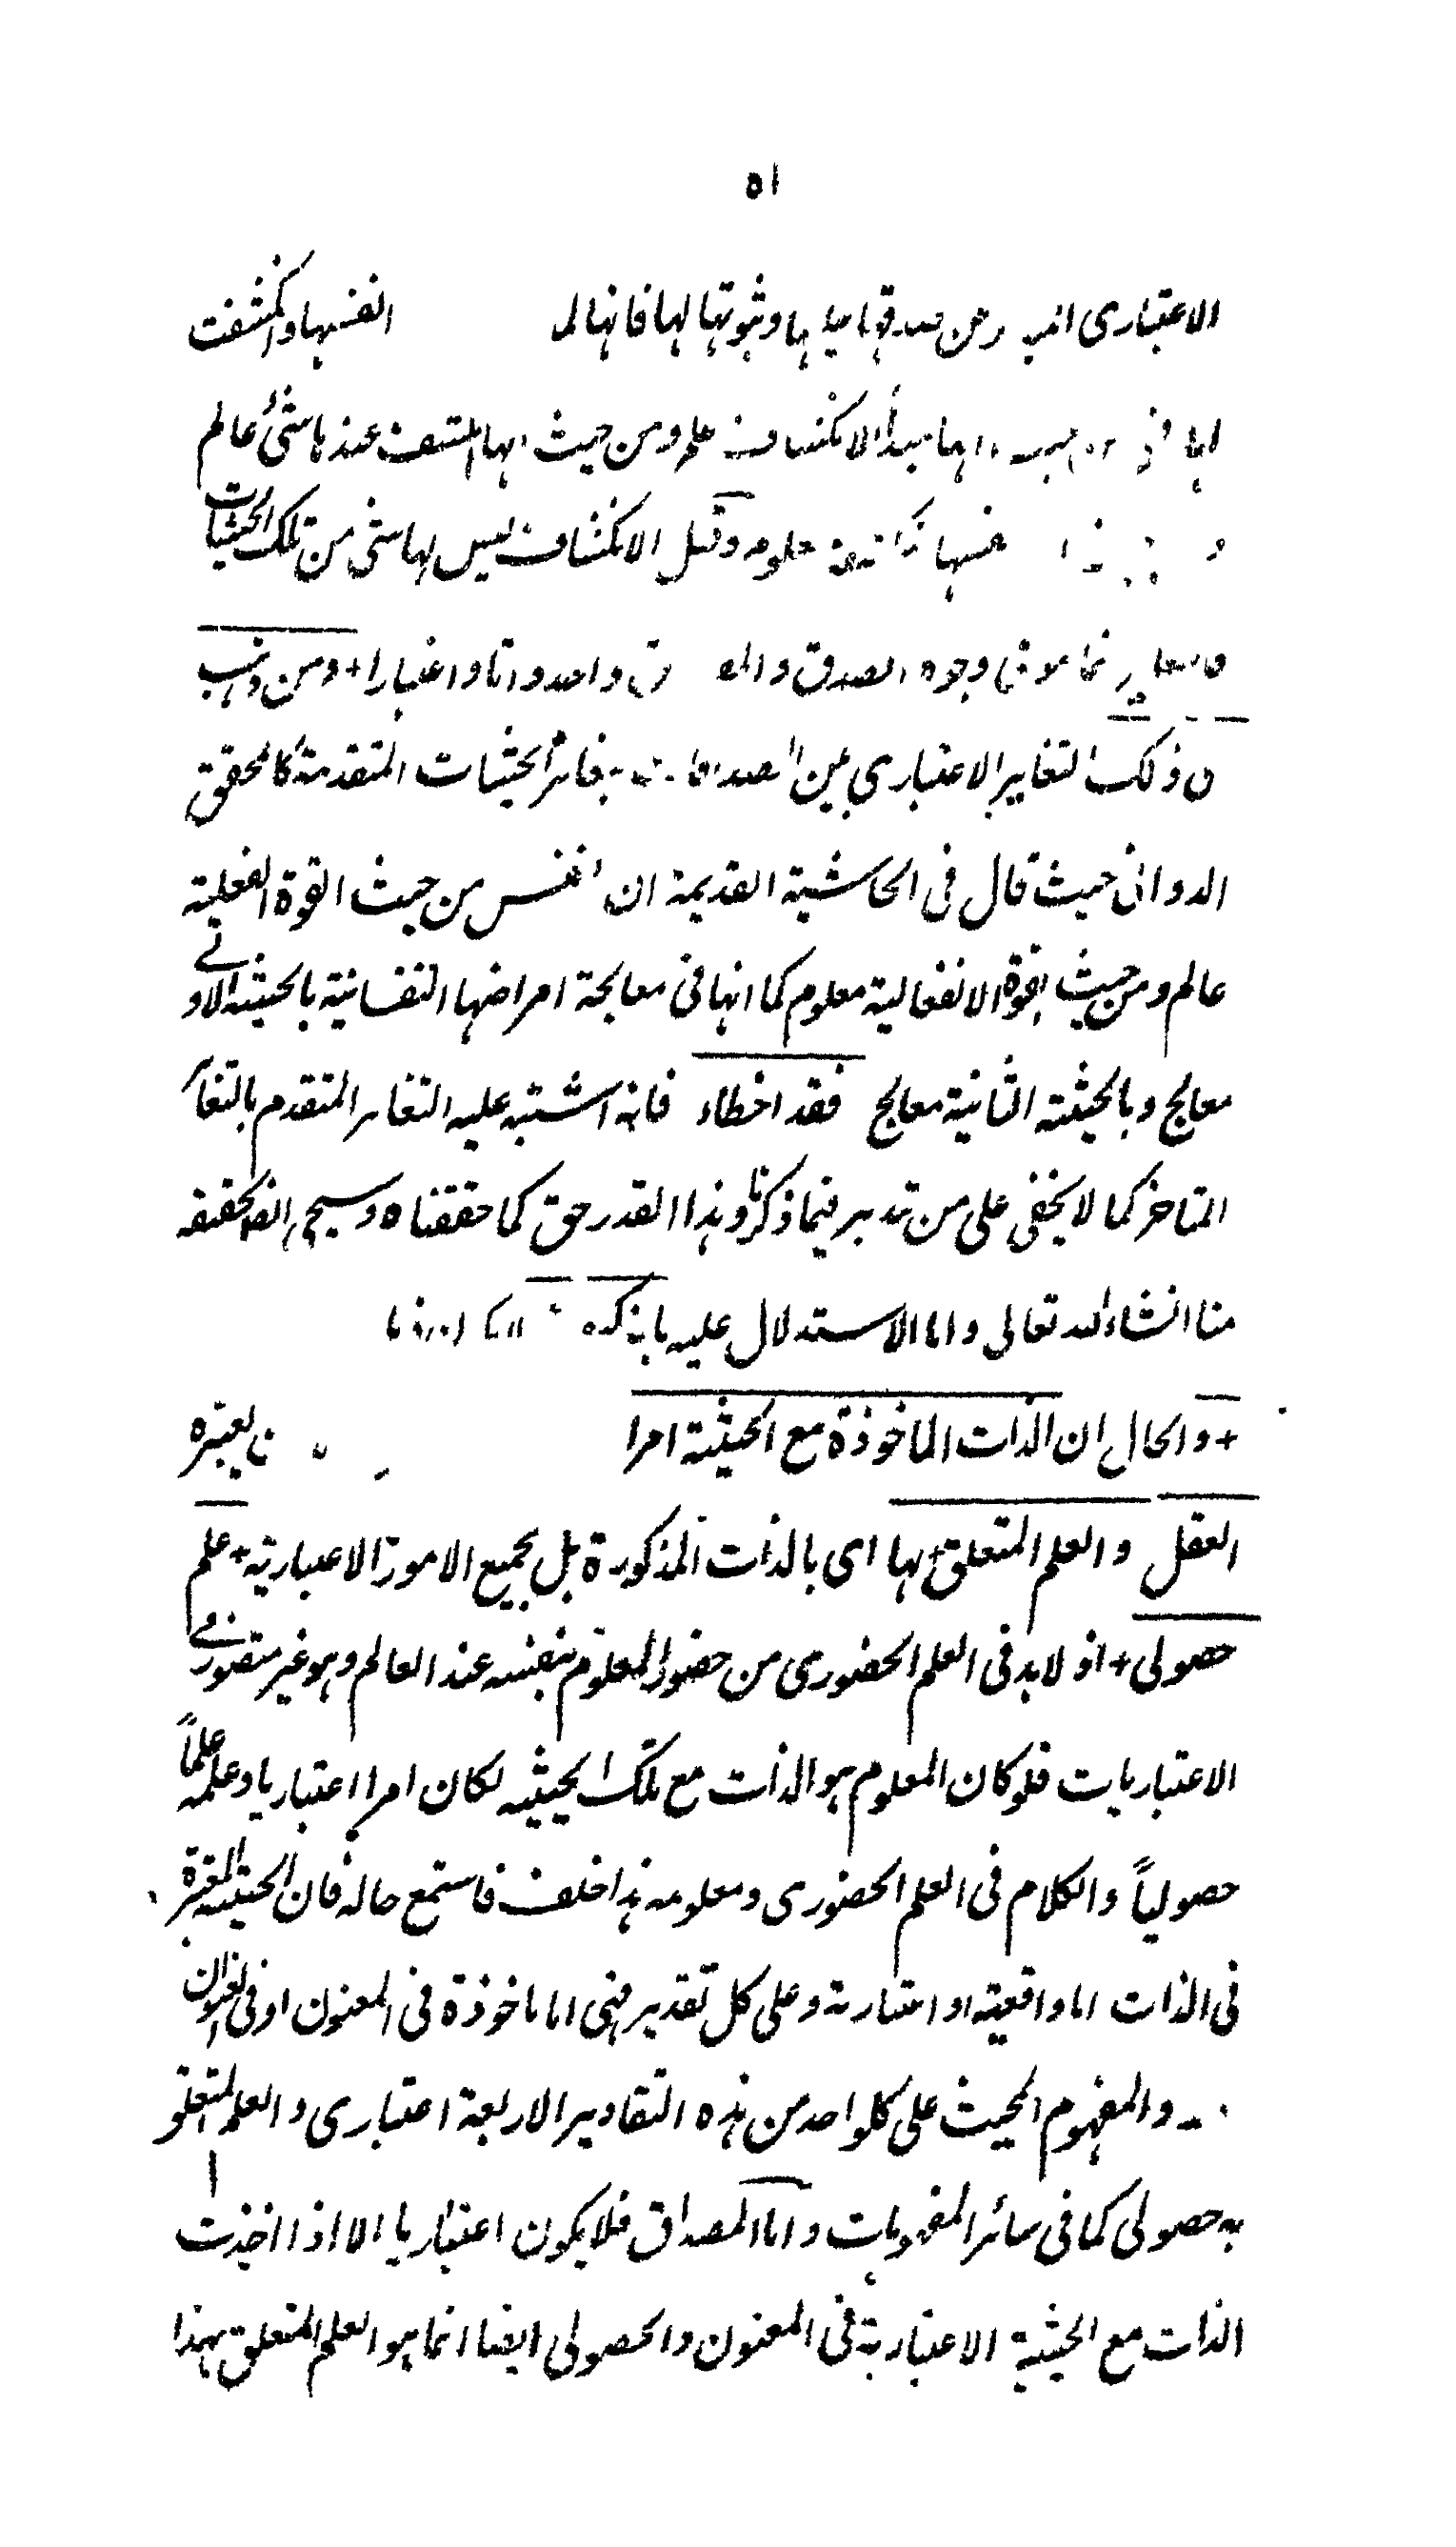 ٥١
الاعتباري عن صدقها عليها وثبوتها لها فانها لما انفسها وانكشفت
مبدأ الانكشاف علم ومن حيث انها انكشفت عندها شئ عالم
نفسها معلومه وقبل الانكشاف ليس لها شئ من تلك الحيثيات
فالتغاير انما هو فى وجوه الصدق والمصداق واحد ذاتا واعتبارا + ومن ذهب
ان ذلك التغاير الاعتباري بين المصداقات بتغائر الحيثيات المتقدمة كالمحقق
الدوانى حيث قال فى الحاشية القديمة ان النفس من حيث القوة الفعلية
عالم ومن حيث القوة الانفعالية معلوم كما انها فى معالجة امراضها النفسانية بالحيثية الاولى
معالج وبالحيثية الثانية معالج فقد اخطاء فانه اشتبه عليه التغاير المتقدم بالتغاير
المتاخر كما لا يخفى على من تدبر فيما ذكرنا وهذا القدر حق كما حققناه وسيجئ انفا تحقيقه
منا انشاء الله تعالى واما الاستدلال عليه بانه
+ والحال ان الذات الماخوذة مع الحيثية امر اعتباره
العقل والعلم المتعلق بها اى بالذات المذكورة بل بجميع الامور الاعتبارية + علم
حصولى + اذ لابد فى العلم الحضورى من حضور المعلوم بنفسه عند العالم وهو غير متصور فى
الاعتباريات فلو كان المعلوم هو الذات مع تلك الحيثيه لكان امرا اعتباريا وعلمه علماً
حصولياً والكلام فى العلم الحضورى ومعلومه هذا خلف فاستمع حاله فان الحيثيه المعتبرة
فى الذات اما واقعية او اعتبارية وعلى كل تقدير فهى اما ماخوذة فى المعنون او فى العنوان
والمفهوم المحيث على كل واحد من هذه التقادير الاربعة اعتبارى والعلم المتعلق
به حصولى كما فى سائر المفهومات واما المصداق فلا يكون اعتباريا الا اذا اخذت
الذات مع الحيثية الاعتبارية فى المعنون والحصولى ايضا انما هو العلم المتعلق بهذا